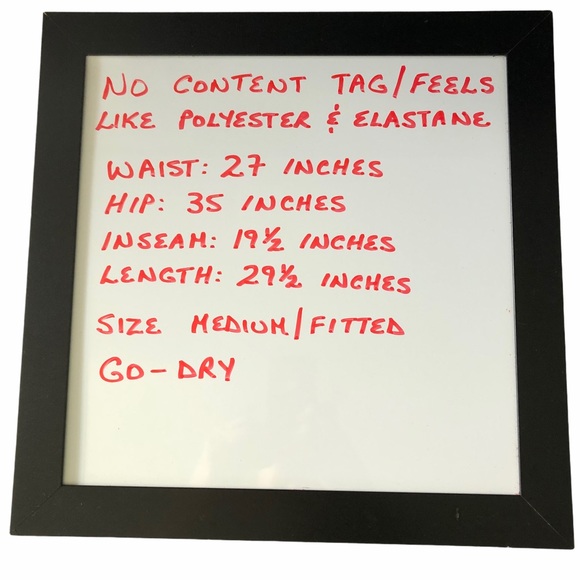 NO CONTENT TAG/FEELS
LIKE POLYESTER & ELASTANE
WAIST: 27 INCHES
HIP: 35 INCHES
INSEAM: 19½ INCHES
LENGTH: 29½ INCHES
SIZE MEDIUM/FITTED
GO-DRY